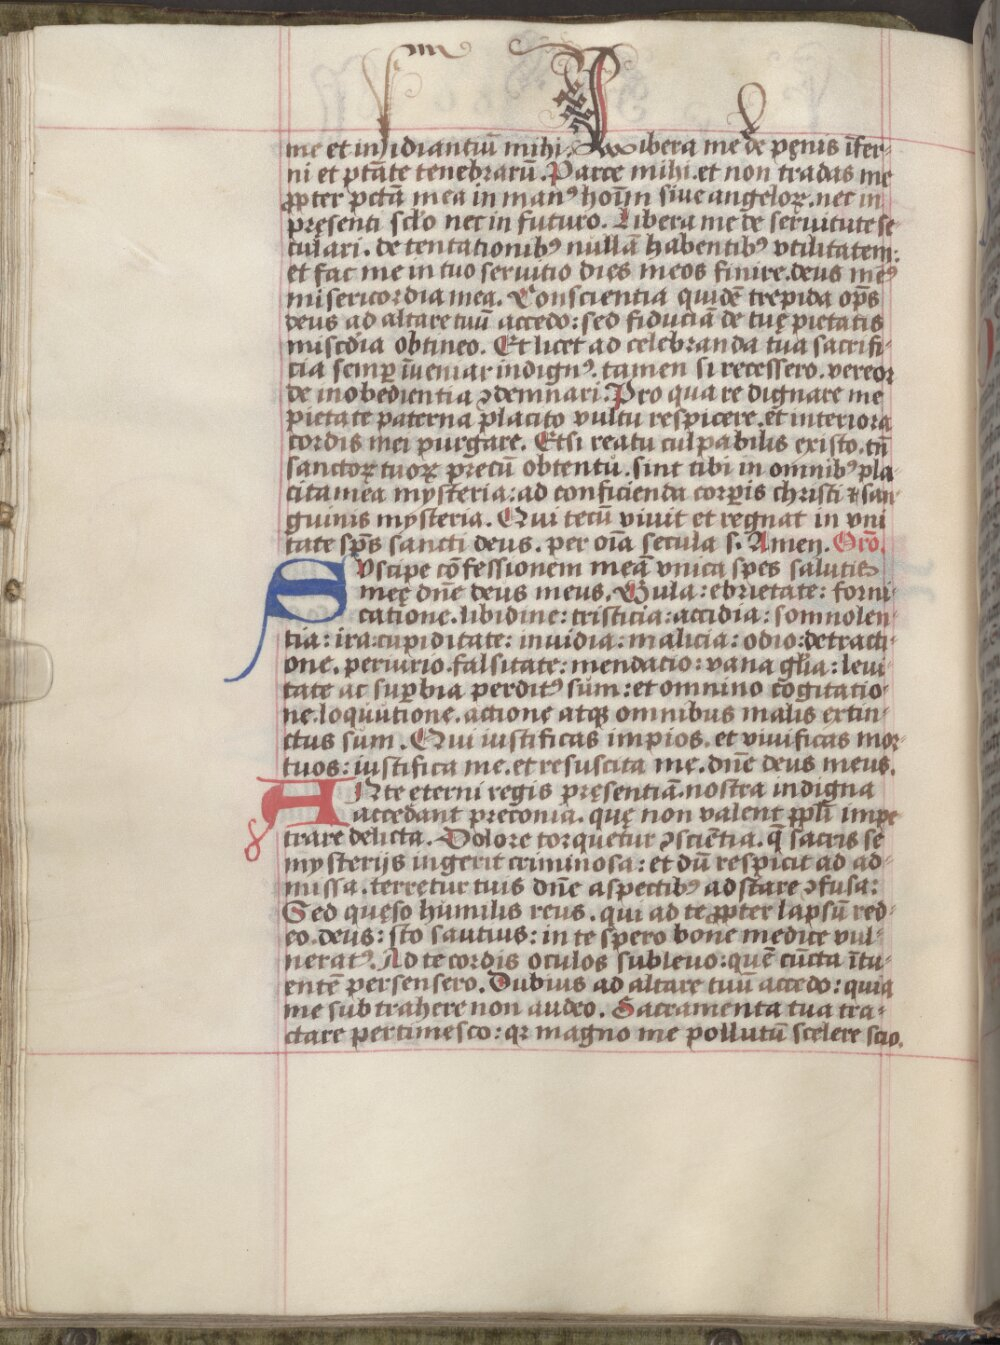 me et insidiantiū mihi. Libera me de pęnis īfer-
ni et ptāte tenebrarū. Parce mihi. et non tradas me
ꝓpter pctā mea in manꝰ hoīm siue angeloꝝ. nec in
pręsenti sclo nec in futuro. Libera me de seruitute se
culari. de tentationibꝰ nullā habentibꝰ vtilitatem:
et fac me in tuo seruitio dies meos finire. deus meꝰ
misericordia mea. Conscientia quidē trepida op̄s
deus ad altare tuū accedo: sed fiduciā de tuę pietatis
miscdia obtineo. Et licet ad celebranda tua sacrifi-
cia semꝑ īueniar indignꝰ. tamen si recessero. vereor
de inobedientia ↄdemnari. Pro qua re dignare me
pietate paterna placito vultu respicere. et interiora
cordis mei purgare. Etsi reatu culpabilis existo. tn̄
sanctoꝝ tuoꝝ precū obtentu. sint tibi in omnibꝰ pla-
cita mea mysteria: ad conficienda corꝑis christi ⁊ san-
guinis mysteria. Qui tecū viuit et regnat in vni
tate sp̄s sancti deus. per oīa secula s. Amen. Orō.
Suscipe cōfessionem meā vnica spes salutis
meę dn̄e deus meus. Gula: ebrietate: forni-
catione. libidine: tristicia: accidia: somnolen-
tia: ira: cupiditate: inuidia: malicia: odio: detracti-
one. periurio. falsitate: mendatio: vana gl̄ia: leui-
tate ac suꝑbia perditꝰ sum: et omnino cōgitatio-
ne. loquutione. actione atqꝫ omnibus malis extin-
ctus sum. Qui iustificas impios. et viuificas mor-
tuos: iustifica me. et resuscita me. dn̄e deus meus.
ANte eterni regis pręsentiā. nostra indigna
accedant preconia. quę non valent ꝓpl̄i impe
trare delicta. Dolore torquetur ↄsciētia. q̄ sacris se
mysterijs ingerit criminosa: et dū respicit ad ad-
missa. terretur tuis dn̄e aspectibꝰ adstare ↄfusa:
Sed quęso humilis reus. qui ad te ꝓpter lapsū red-
eo. deus: sto sautius: in te spero bone medice vul-
neratꝰ. Ad te cordis oculos subleuo: quē cūcta ītu-
entē persensero. Dubius ad altare tuū accedo: quia
me subtrahere non audeo. Sacramenta tua tra-
ctare pertimesco: qꝛ magno me pollutū scelere scio.